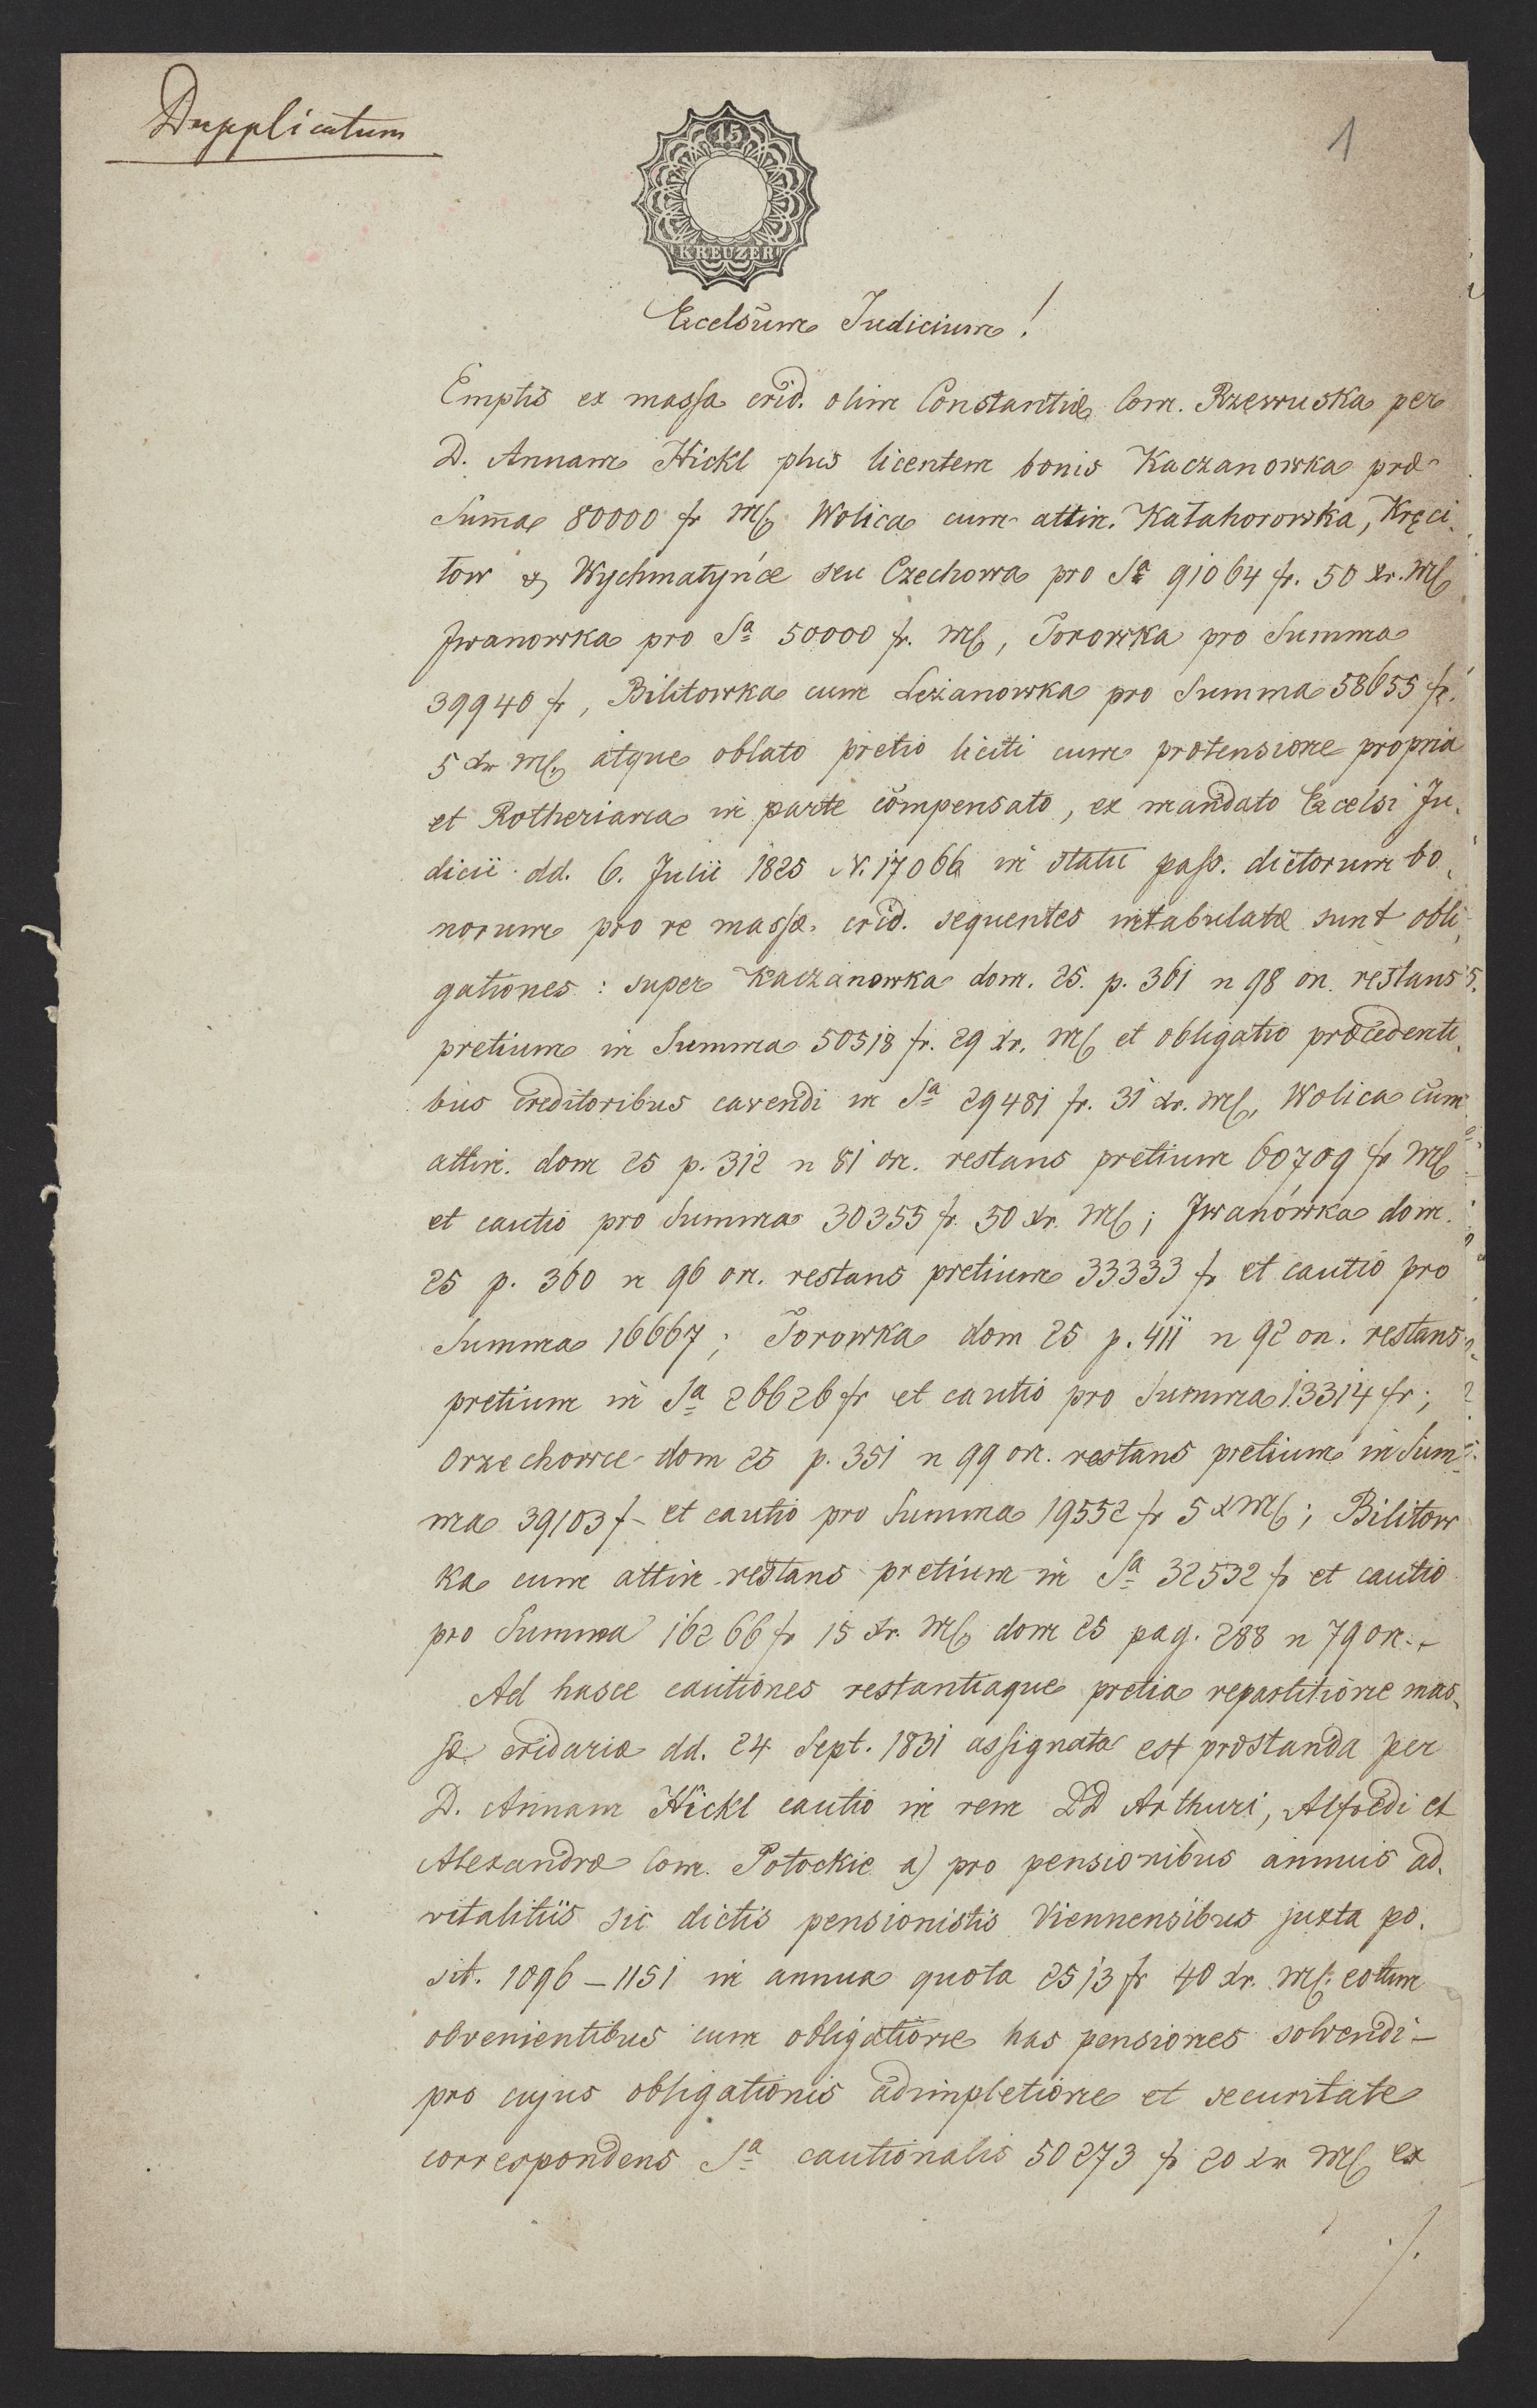 Dupplicatum
1
15
KREUZER
Excelsum Judicium!
Emptis ex massa crid. olim Constantiæ Com. Rzewuska per
D. Annam Hickl plus licentem bonis Kaczanowka præ
Sum̄a 80000 fr MC Wolica cum attin. Kałahorowka, Kręci,
łow & Wychmatyńce seu Czechowa pro Sa 91064 fr. 50 xr. MC
Iwanowka pro Sa 50000 fr. MC, Torowka pro Summa
39940 fr, Bilitowka cum Lezanowka pro Summa 58655 fr.
5 xr MC, atque oblato pretio liciti cum prætensione propria
et Rotheriana in parte compensato, ex mandato Excelsi Ju,
dicii dd. 6. Julii 1825 N. 17066 in statu pass. dictorum bo,
norum pro re massæ crid. sequentes intabulatæ sunt obli,
gationes: super Kaczanowka dom. 25. p. 361 n 98 on. restans
pretium in Summa 50518 fr. 29 xr. MC et obligatio præcedenti,
bus creditoribus cavendi in Sa 29481 fr. 31 xr. MC, Wolica cum
attin. dom 25 p. 312 n 81 on. restans pretium 60709 fr MC
et cautio pro Summa 30355 fr. 50 xr. MC; Iwanówka dom.
25 p. 360 n 96 on. restans pretium 33333 fr et cautio pro
Summa 16667; Torowka dom 25 p. 411 n 92 on. restans
pretium in Sa 26626 fr et cautio pro Summa 13314 fr;
Orzechowce dom 25 p. 351 n 99 on. restans pretium in Sum,
ma 39103 f- et cautio pro Summa 19552 fr 5 x MC; Bilitow
ka cum attin restans pretium in Sa 32532 fr et cautio
pro Summa 16266 fr 15 xr. MC dom 25 pag. 288 n 79 on.-
Ad hasce cautiones restantiaque pretia repartitione mas,
sæ cridariæ dd. 24 Sept. 1831 assignata est præstanda per
D. Annam Hickl cautio in rem DD Arthuri, Alfredi et
Alexandræ Com. Potockie a) pro pensionibus annuis ad,
vitalitiis sic dictis pensionistis Viennensibus juxta po,
sit. 1096-1151 in annua quota 2513 fr 40 xr. MC. eotum
obvenientibus cum obligatione has pensiones solvendi-
pro cujus obligationis adimpletione et securitate
correspondens Sa cautionalis 50273 fr 20 xr MC ex
./.